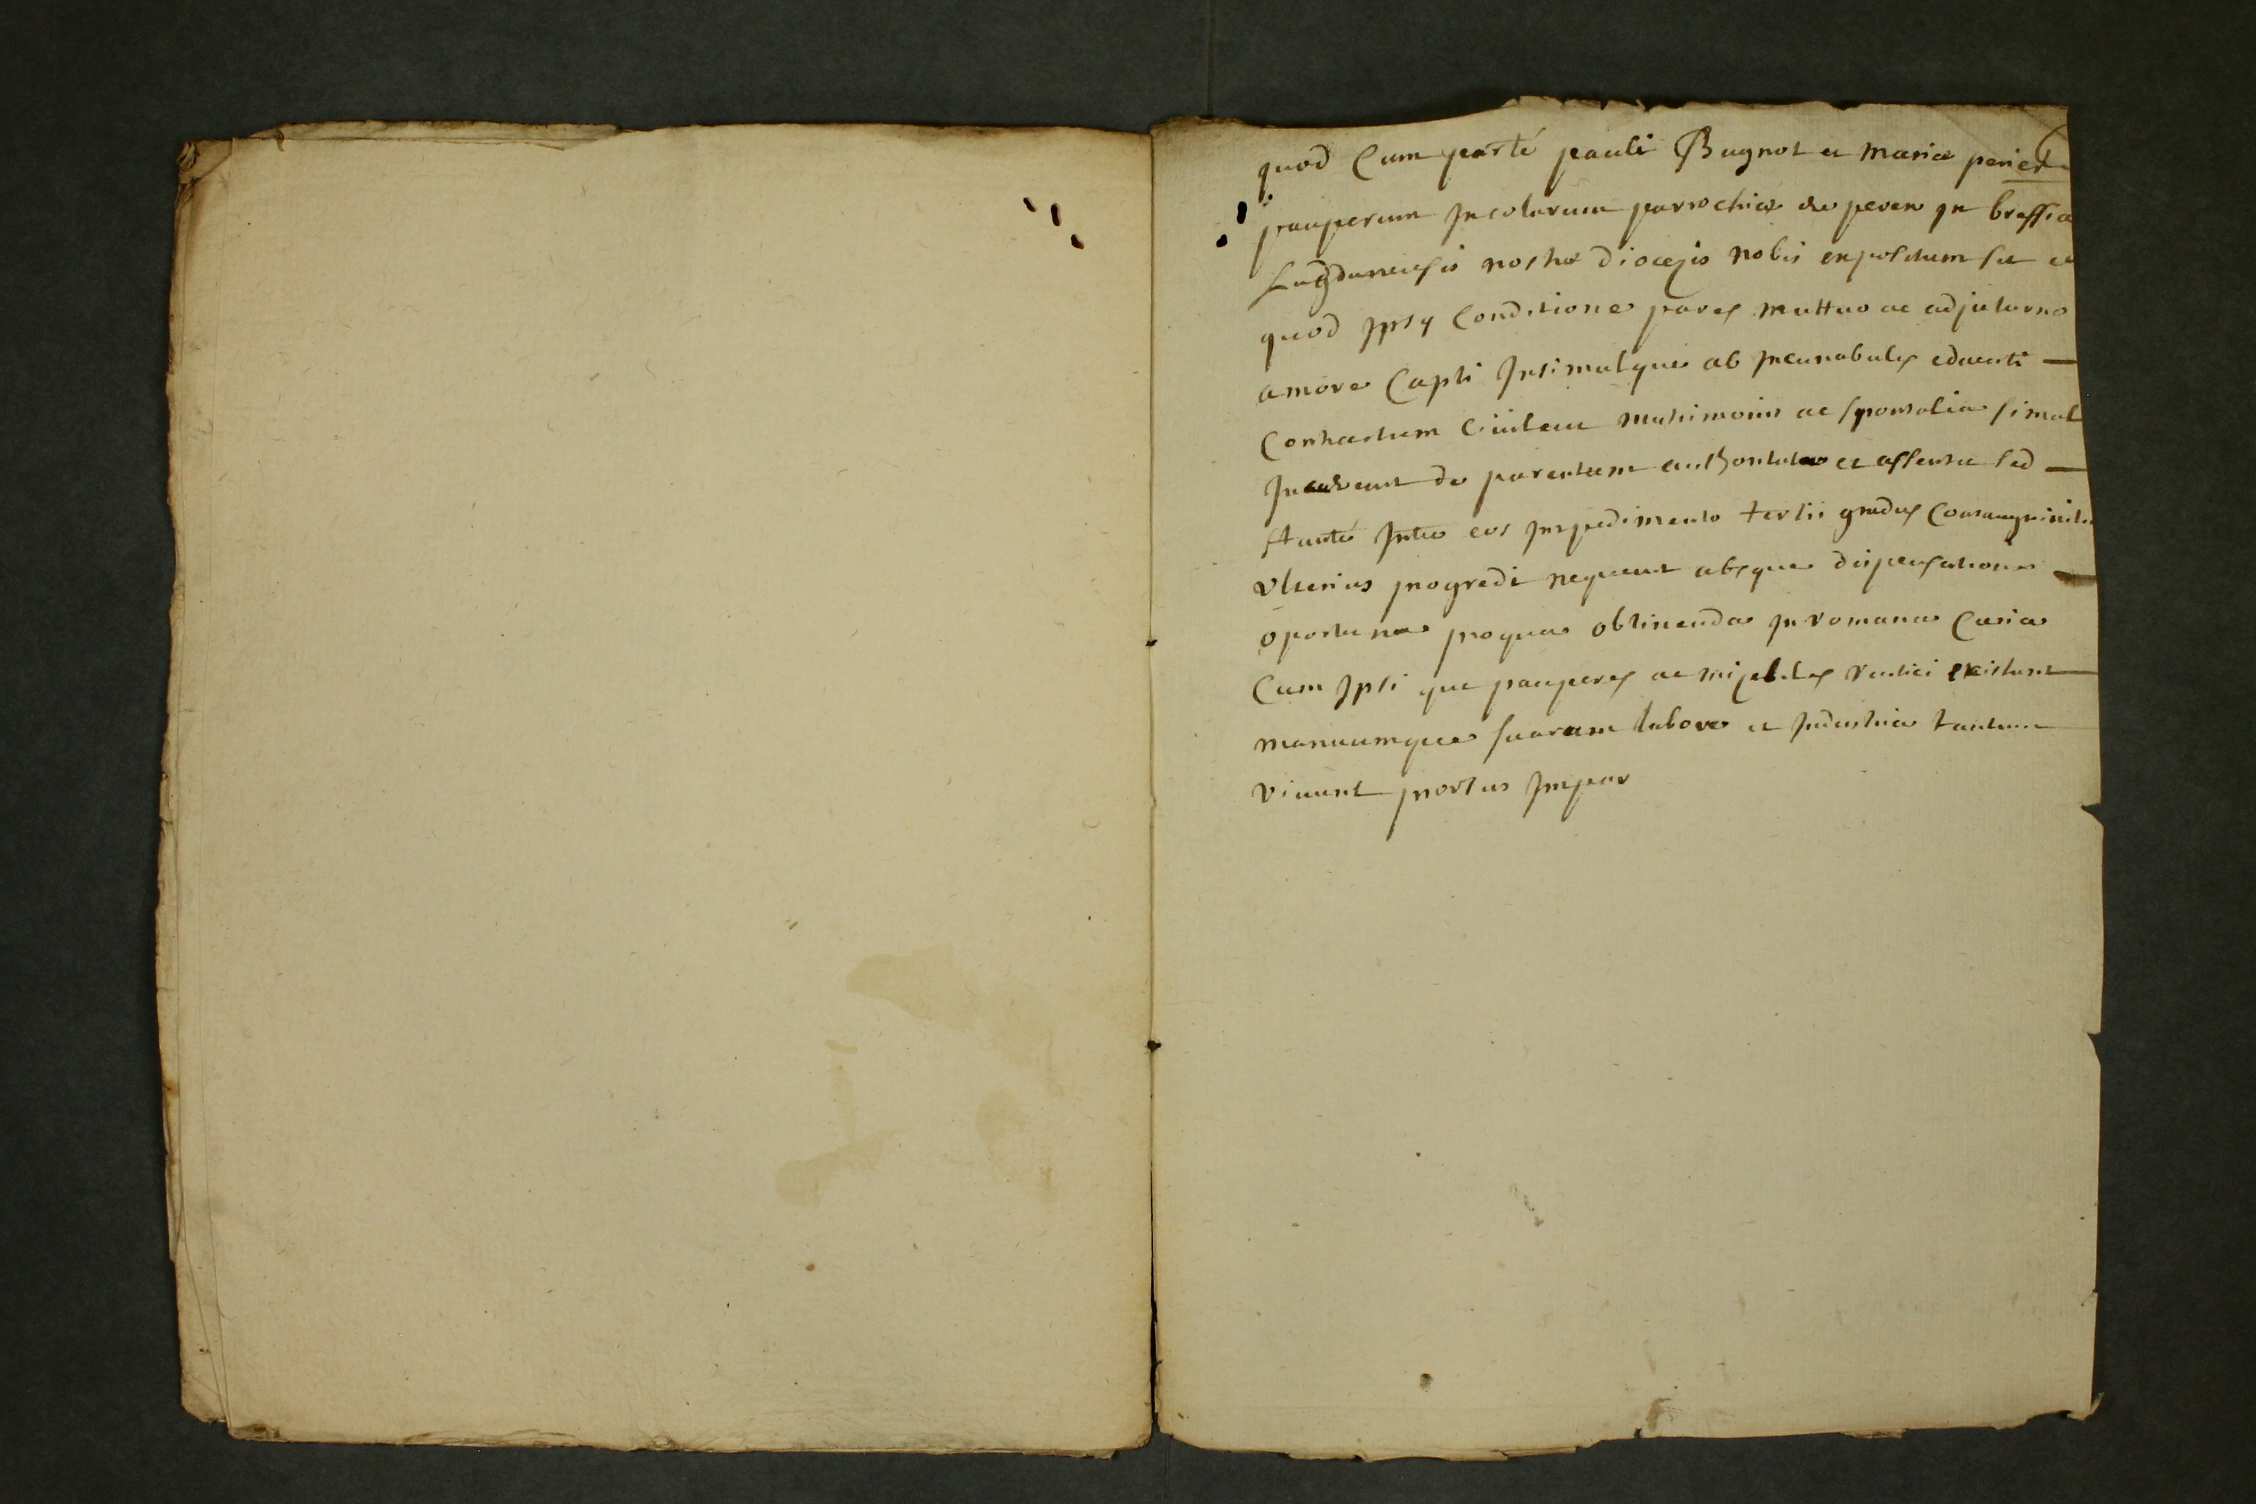 quod Cum parte pauli Bugnot et mariæ periet
pauperum Incolarum parrochiæ de peren In bressia
Lugdunensis nostræ diocesis nobis expositum sit et
quod Ipsy Conditione pares muttuo ac adjutorno
amore Capti Insimulque ab Incunabulis educati
Contractum Ciuilem matrimonii ac sponsalia simul
de parentum authoritate et assensu sed
stante Inter eos Impedimento tertii gradus Consanguinita
vlterius progredi nequeunt absque dispensatione
oportuna proqua obtinenda In romana Curia
Cum Ipsi que pauperes ac rustici existant
manuumque suarum labore et Industria tantum
viuunt prorsus Impar